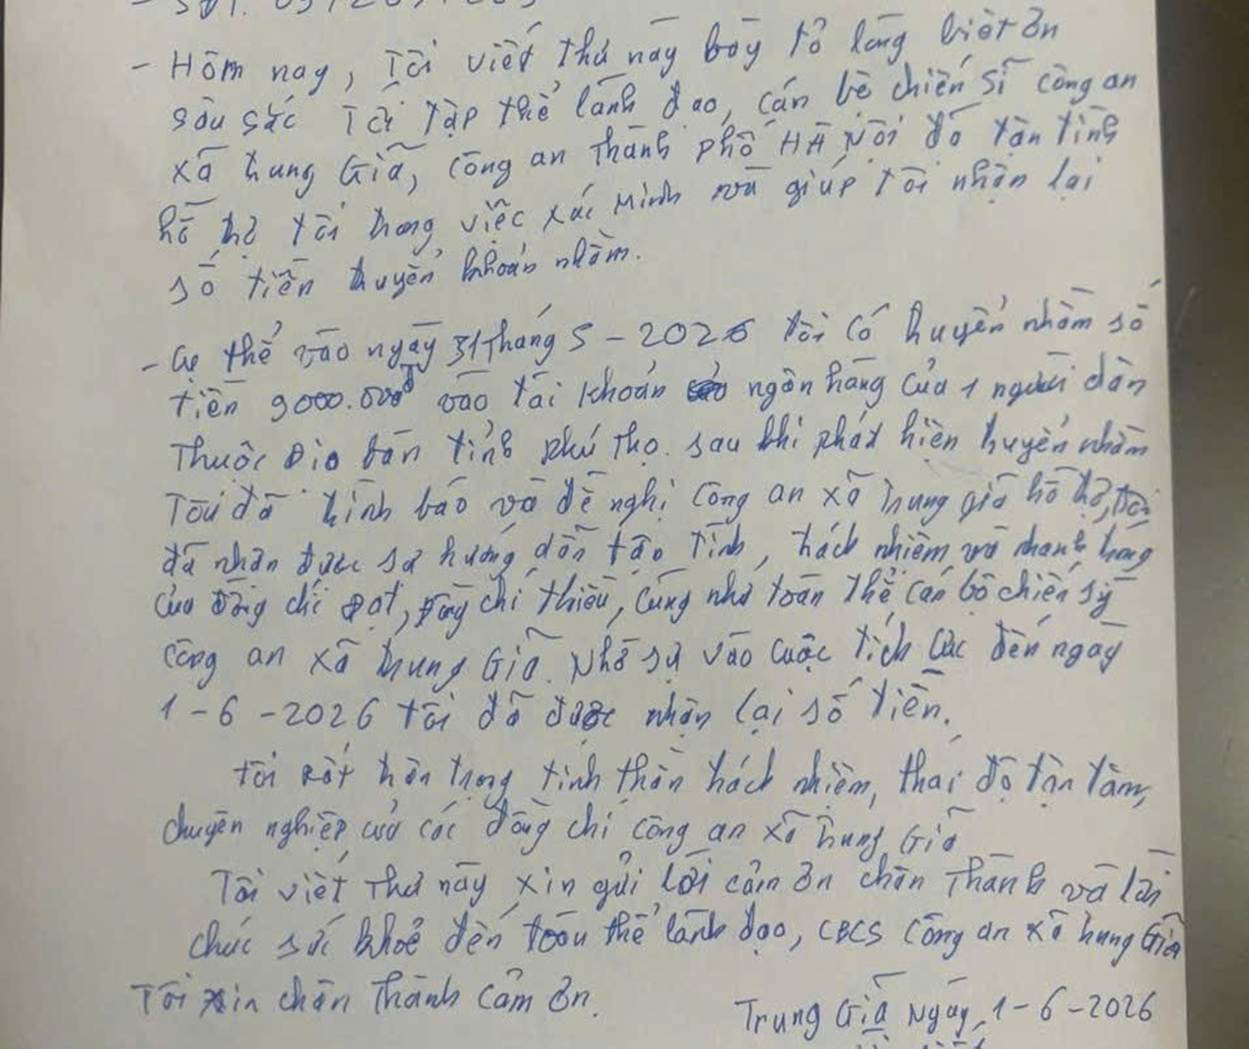 - Hôm nay, Tôi viết thư này bày tỏ lòng biết ơn
sâu sắc Tới tập thể lãnh đạo, cán bộ chiến sĩ công an
xã Trung Giã, công an Thành phố HÀ Nội đã tận tình
hỗ trợ tôi trong việc xác minh và giúp tôi nhận lại
số tiền chuyển khoản nhầm.
- Cụ thể vào ngày 31 tháng 5 - 2026 tôi có chuyển nhầm số
tiền 9000.000đ vào tài khoản ngân hàng của 1 người dân
Thuộc địa bàn tỉnh phú Thọ. sau khi phát hiện chuyển nhầm
Tôi đã trình báo và đề nghị công an xã Trung giã hỗ trợ, tôi
đã nhận được sự hướng dẫn tận tình, trách nhiệm và nhanh chóng
của đồng chí Đạt, đồng chí Thiều, cũng như toàn thể cán bộ chiến sỹ
công an xã Trung Giã. Nhờ sự vào cuộc tích cực đến ngày
1 - 6 - 2026 tôi đã được nhận lại số tiền.
tôi rất trân trọng tinh thần trách nhiệm, thái độ tận tâm,
chuyên nghiệp của các đồng chí công an xã Trung Giã
Tôi viết Thư này xin gửi lời cảm ơn chân Thành và lời
chúc sức khoẻ đến toàn thể lãnh đạo, CBCS công an xã Trung Giã
Tôi xin chân Thành cảm ơn.
Trung Giã Ngày 1 - 6 - 2026